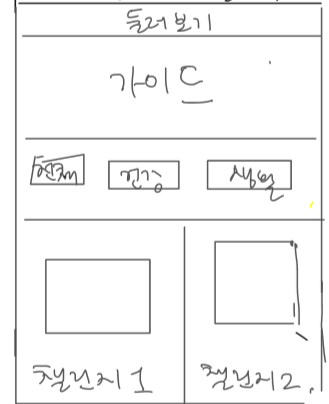 둘러보기
가이드
전체 건강 생활
챌린지 1
챌린지 2.